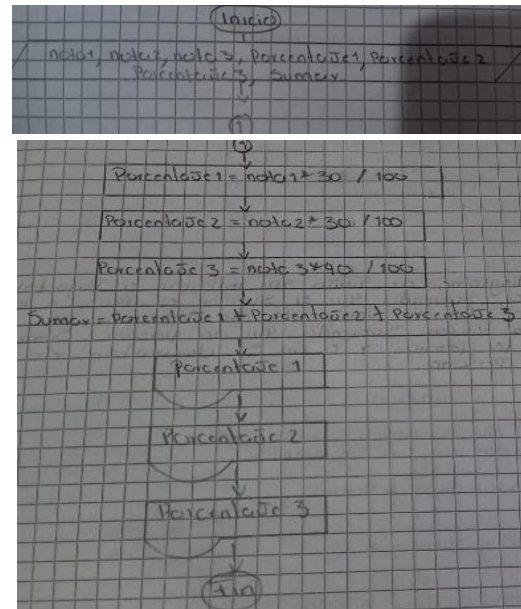 Inicio
nota1, nota2, nota3, Porcentaje1, Porcentaje2
Porcentaje3, Sumar
1
1
Porcentaje1 = nota1 * 30 / 100
Porcentaje 2 = nota2 * 30 / 100
Porcentaje 3 = nota 3*40 / 100
Sumar = Porcentaje 1 + Porcentaje2 + Porcentaje 3
Porcentaje 1
Porcentaje 2
Porcentaje 3
fin